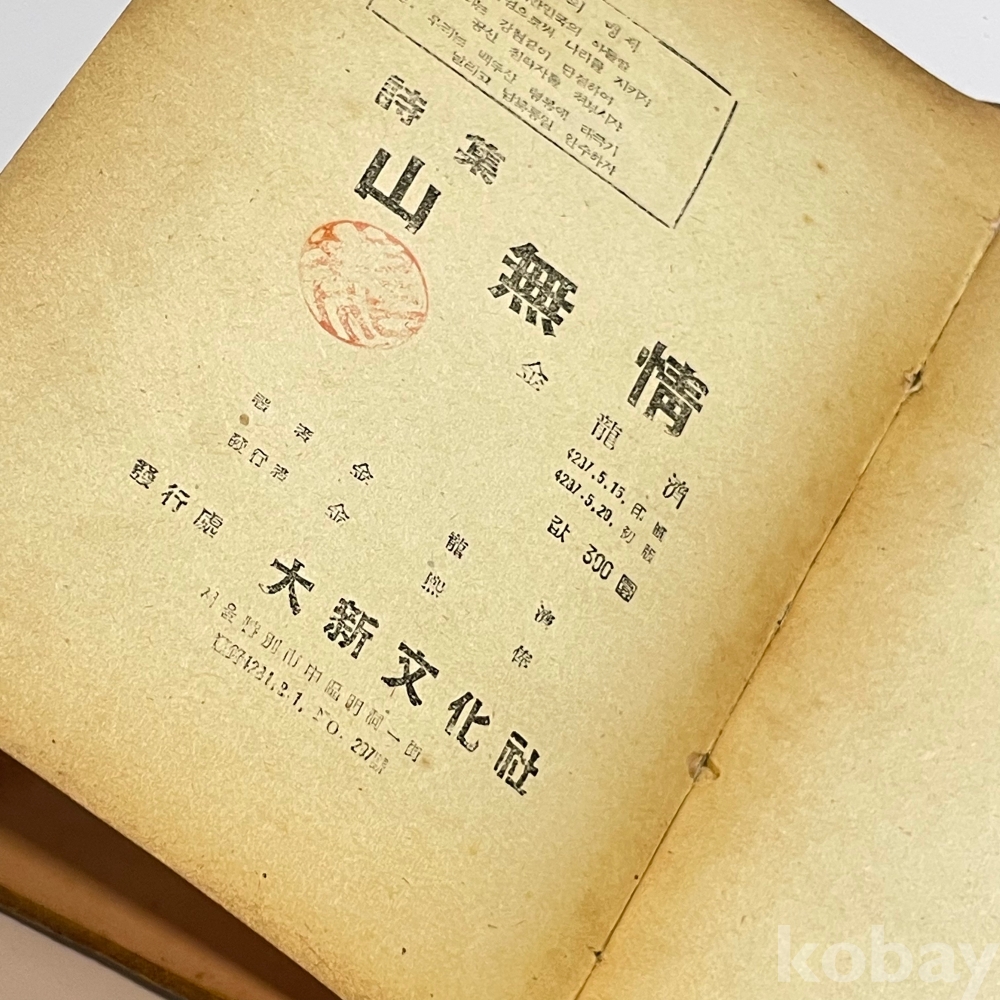 의 맹세
민국의 아들딸
으로써 나라를 지키자
는 강철같이 단결하여
공산 침략자를 쳐부시자
우리는 백두산 영봉에 태극기
날리고 남북통일 완수하자
詩集
山無情
金龍濟
4287.5.15. 印刷
4287.5.20. 初版
값 300圜
著者 金龍濟
發行者 金熙
發行處 大新文化社
서울特別市中區明洞一街
4281.2.1. NO. 237號
kobay